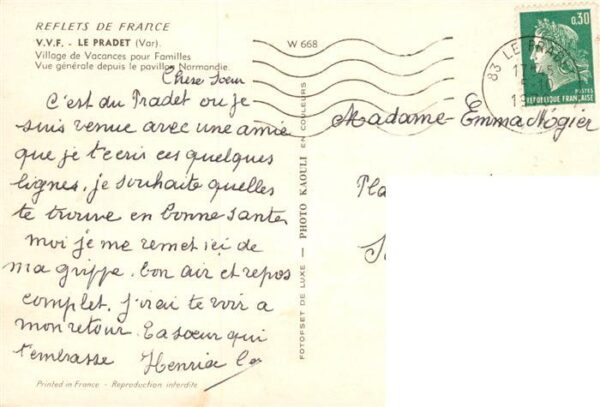 REFLETS DE FRANCE
V.V.F. - LE PRADET (Var).
Village de Vacances pour Familles
Vue générale depuis le pavillon Normandie.
Chere Sœur
C'est du Pradet ou je
suis venue avec une amie
que je t'ecris ces quelques
lignes, je souhaite quelles
te trouve en bonne santer
moi je me remet ici de
ma grippe, bon air et repos
complet, j'irai te voir a
mon retour. Ta sœur qui
t'embrasse Henria
Printed in France - Reproduction interdite
FOTOFSET DE LUXE — PHOTO KAOULI — EN COULEURS
W 668
83 LE PRADET
0,30
POSTES
REPUBLIQUE FRANÇAISE
Madame Emma Nógier